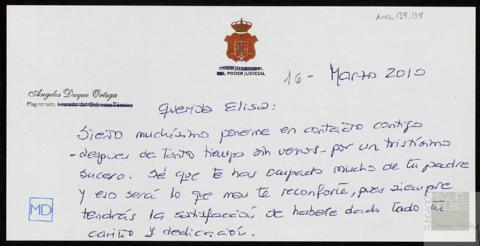 AMD, 139, 139
CONSEJO GENERAL
DEL PODER JUDICIAL
16 - Marzo 2010
Angeles Duque Ortega
Magistrado, Letrado del Gabinete Técnico
Querida Elisa:
Siento muchísimo ponerme en contacto contigo
- despues de tanto tiempo sin vernos - por un tristísimo
suceso. Sé que te has ocupado mucho de tu padre
y eso será lo que mas te reconforte, pues siempre
tendrás la satisfacción de haberle dado todo tu
cariño y dedicación.
MD